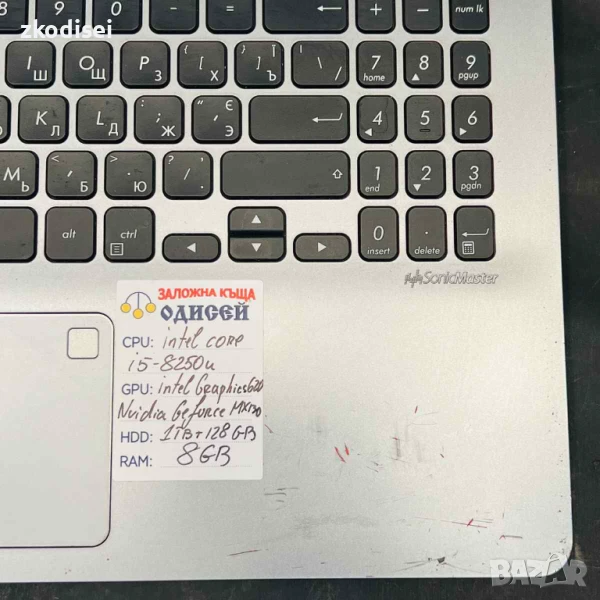 zkodisei
8 9 0 - = + - num lk
I Ш O Щ P З { [ Х } ] Ъ | \ / 7 home 8 9 pgup
K Л L Д : ; Ж " ' Э Є 4 5 6
М Ь < , Б > . Ю ? / . 1 end 2 3 pgdn
alt ctrl 0 insert . delete
SonicMaster
ЗАЛОЖНА КЪЩА
ОДИСЕЙ
CPU: intel core
i5-8250u
GPU: intel Graphics 620
Nvidia Geforce MX130
HDD: 1TB+128 GB
RAM: 8GB
BAZAR